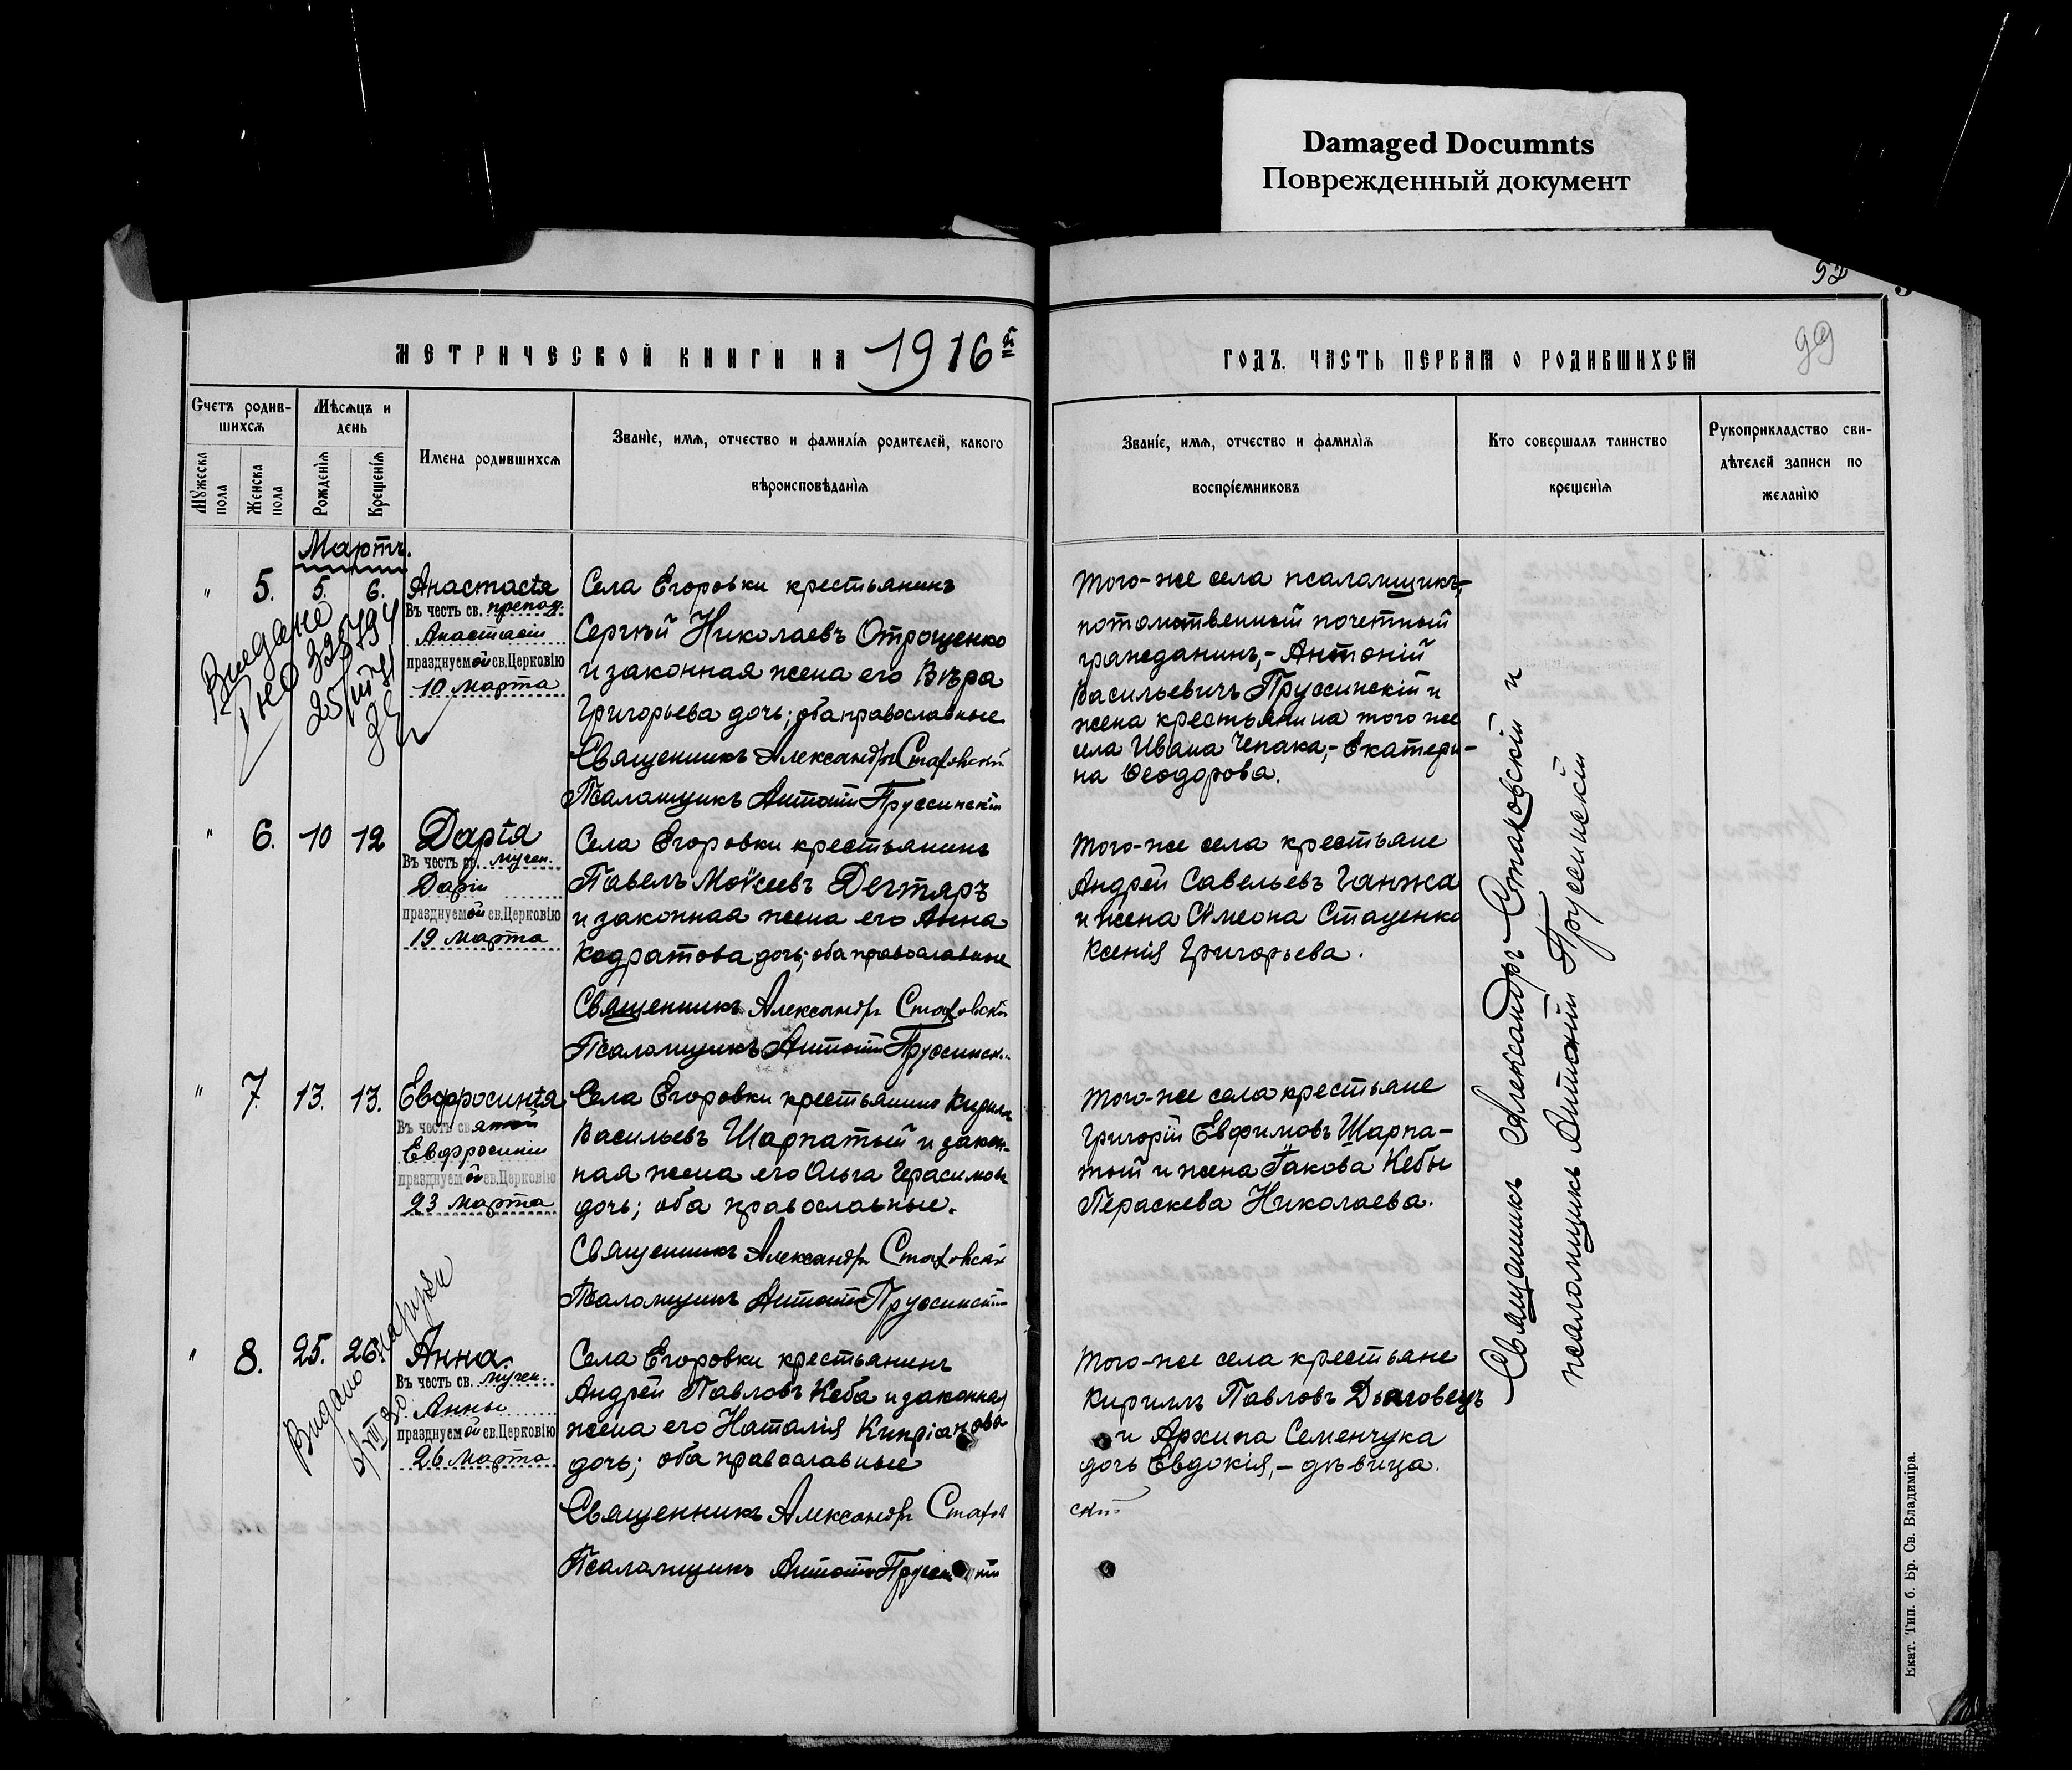 Damaged Documnts
Поврежденный документ
52
99
МЕТРИЧЕСКОЙ КНИГИ НА 1916й
ГОДЪ. ЧАСТЬ ПЕРВАЯ О РОДИВШИХСЯ
Счетъ родив-
шихся
Мужеска пола
Женска пола
Мѣсяцъ и
день
Рожденія
Крещенія
Имена родившихся
Званіе, имя, отчество и фамилія родителей, какого
вѣроисповѣданія
Званіе, имя, отчество и фамилія
воспріемниковъ
Кто совершалъ таинство
крещенія
Рукоприкладство сви-
дѣтелей записи по
желанію
Мартъ.
" 5. 5. 6.
Анастасія
Въ честь св. препод.
Анастасіи
празднуемой св. Церковію
10 марта
Села Егоровки крестьянинъ
Сергѣй Николаевъ Отрощенко
и законная жена его Вѣра
Григорьева дочь; оба православные
Священникъ Александръ Стаховскій
Псаломщикъ Антоній Пруссинскій
Того-же села псаломщикъ,
потомственный почетный
гражданинъ,- Антоній
Васильевичъ Пруссинскій и
жена крестьянина того же
села Ивана Чепака,- Екатери-
на Ѳеодорова.
" 6. 10 12
Дарія
Въ честь св. мучен.
Даріи
празднуемой св. Церковію
19 марта
Села Егоровки крестьянинъ
Павелъ Моѵсеевъ Дегтяръ
и законная жена его Анна
Кодратова дочь; оба православные
Священникъ Александръ Стаховскій
Псаломщикъ Антоній Пруссинск..
Того-же села крестьяне
Андрей Савельевъ Ганжа
и жена Сѵмеона Стаценко
Ксенія Григорьева.
" 7. 13. 13.
Евфросинія
Въ честь святой
Евфросиніи
празднуемой св. Церковію
23 марта
Села Егоровки крестьянинъ Кириллъ
Васильевъ Шарпатый и закон-
ная жена его Ольга Герасимова
дочь; оба православные.
Священникъ Александръ Стаховскій
Псаломщикъ Антоній Пруссинскій
Того-же села крестьяне
Григорій Евфимовъ Шарпа-
тый и жена Іакова Кебы
Пераскева Николаева.
" 8. 25. 26.
Анна.
Въ честь св. мучен.
Анны
празднуемой св. Церковію
26 марта
Села Егоровки крестьянинъ
Андрей Павловъ Кеба и законная
жена его Наталія Кипріанова
дочь; оба православные
Священникъ Александръ Стахов
скій
Псаломщикъ Антоній
Того-же села крестьяне
Кириллъ Павловъ
и Архипа Семенчука
дочь Евдокія,- дѣвица.
Священникъ Александръ Стаховскій и
псаломщикъ Антоній Пруссинскій
Видано
Екат. Тип. б. Бр. Св. Владиміра.